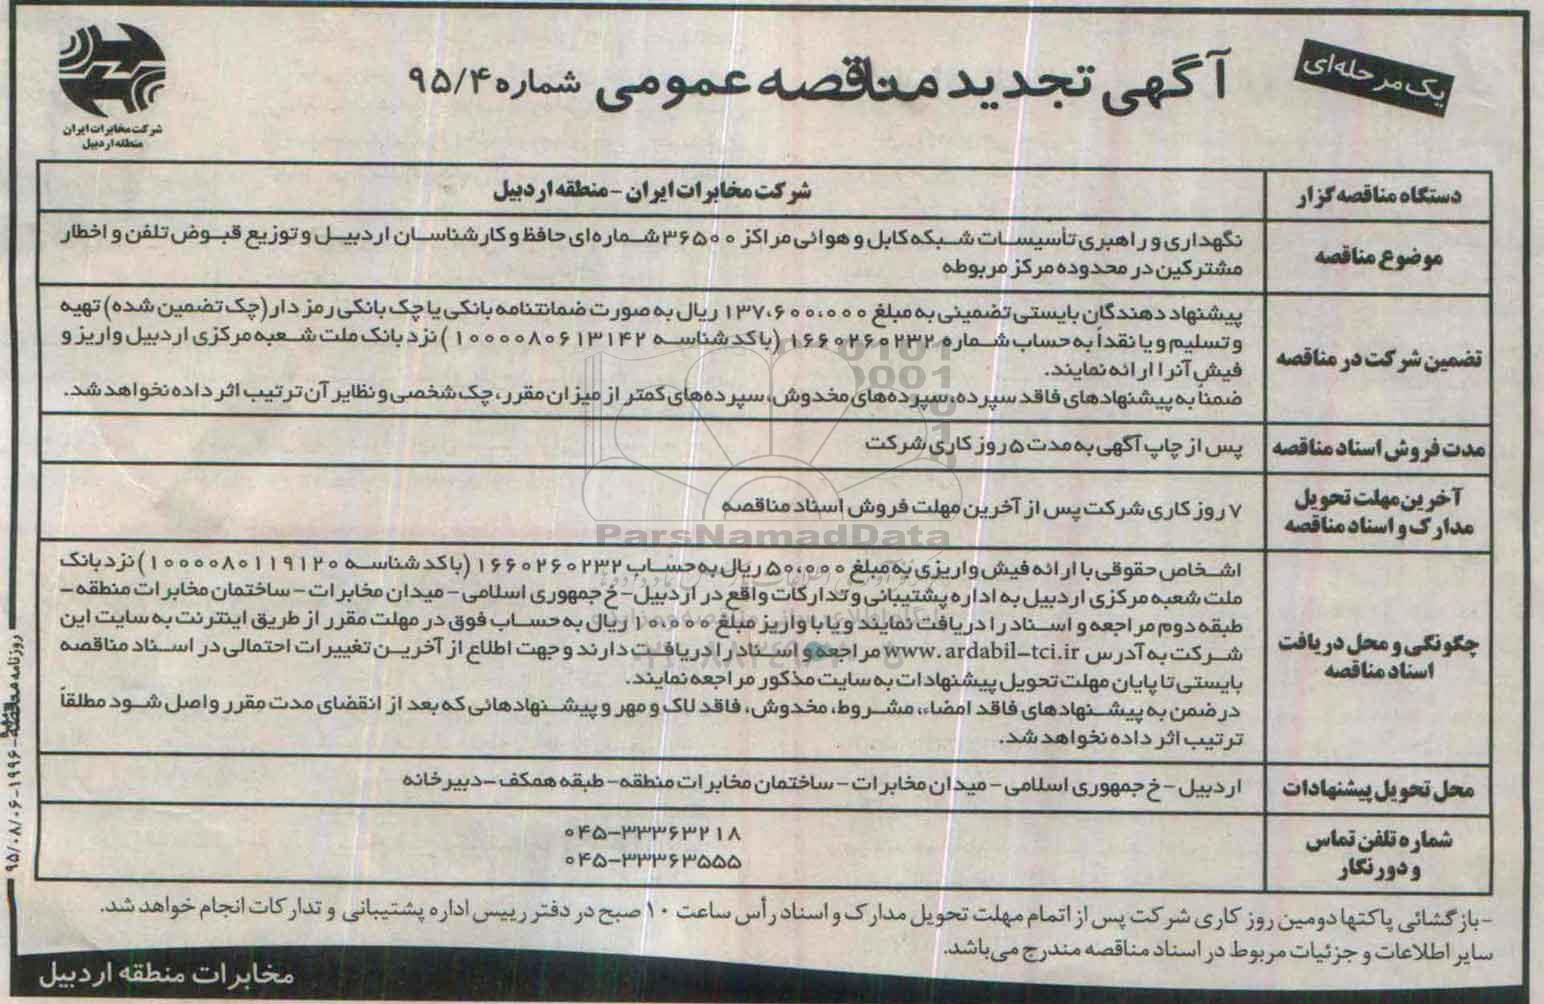 یک مرحله‌ای
آگهی تجدید مناقصه عمومی شماره ۹۵/۴
شرکت مخابرات ایران
منطقه اردبیل
دستگاه مناقصه گزار
شرکت مخابرات ایران - منطقه اردبیل
موضوع مناقصه
نگهداری و راهبری تأسیسات شبکه کابل و هوائی مراکز ۳۶۵۰۰ شماره‌ای حافظ و کارشناسان اردبیل و توزیع قبوض تلفن و اخطار
مشترکین در محدوده مرکز مربوطه
تضمین شرکت در مناقصه
پیشنهاد دهندگان بایستی تضمینی به مبلغ ۱۳۷،۶۰۰،۰۰۰ ریال به صورت ضمانتنامه بانکی یا چک بانکی رمز دار (چک تضمین شده) تهیه
و تسلیم و یا نقداً به حساب شماره ۱۶۶۰۲۶۰۲۳۲ (با کد شناسه ۱۰۰۰۰۸۰۶۱۳۱۴۲) نزد بانک ملت شعبه مرکزی اردبیل واریز و
فیش آنرا ارائه نمایند.
ضمناً به پیشنهادهای فاقد سپرده، سپرده‌های مخدوش، سپرده‌های کمتر از میزان مقرر، چک شخصی و نظایر آن ترتیب اثر داده نخواهد شد.
مدت فروش اسناد مناقصه
پس از چاپ آگهی به مدت ۵ روز کاری شرکت
آخرین مهلت تحویل
مدارک و اسناد مناقصه
۷ روز کاری شرکت پس از آخرین مهلت فروش اسناد مناقصه
چگونگی و محل دریافت
اسناد مناقصه
اشخاص حقوقی با ارائه فیش واریزی به مبلغ ۵۰،۰۰۰ ریال به حساب ۱۶۶۰۲۶۰۲۳۲ (با کد شناسه ۱۰۰۰۰۸۰۱۱۹۱۲۰) نزد بانک
ملت شعبه مرکزی اردبیل به اداره پشتیبانی و تدارکات واقع در اردبیل - خ جمهوری اسلامی - میدان مخابرات - ساختمان مخابرات منطقه -
طبقه دوم مراجعه و اسناد را دریافت نمایند و یا با واریز مبلغ ۱۰،۰۰۰ ریال به حساب فوق در مهلت مقرر از طریق اینترنت به سایت این
شرکت به آدرس www.ardabil-tci.ir مراجعه و اسناد را دریافت دارند و جهت اطلاع از آخرین تغییرات احتمالی در اسناد مناقصه
بایستی تا پایان مهلت تحویل پیشنهادات به سایت مذکور مراجعه نمایند.
در ضمن به پیشنهادهای فاقد امضاء، مشروط، مخدوش، فاقد لاک و مهر و پیشنهادهائی که بعد از انقضای مدت مقرر واصل شود مطلقاً
ترتیب اثر داده نخواهد شد.
محل تحویل پیشنهادات
اردبیل - خ جمهوری اسلامی - میدان مخابرات - ساختمان مخابرات منطقه - طبقه همکف - دبیرخانه
شماره تلفن تماس
و دورنگار
۰۴۵-۳۳۳۶۳۲۱۸
۰۴۵-۳۳۳۶۳۵۵۵
- بازگشائی پاکتها دومین روز کاری شرکت پس از اتمام مهلت تحویل مدارک و اسناد رأس ساعت ۱۰ صبح در دفتر رییس اداره پشتیبانی و تدارکات انجام خواهد شد.
سایر اطلاعات و جزئیات مربوط در اسناد مناقصه مندرج می‌باشد.
مخابرات منطقه اردبیل
روزنامه مناقصه-۱۹۹۶-۹۵/۰۸/۰۶
ParsNamadData